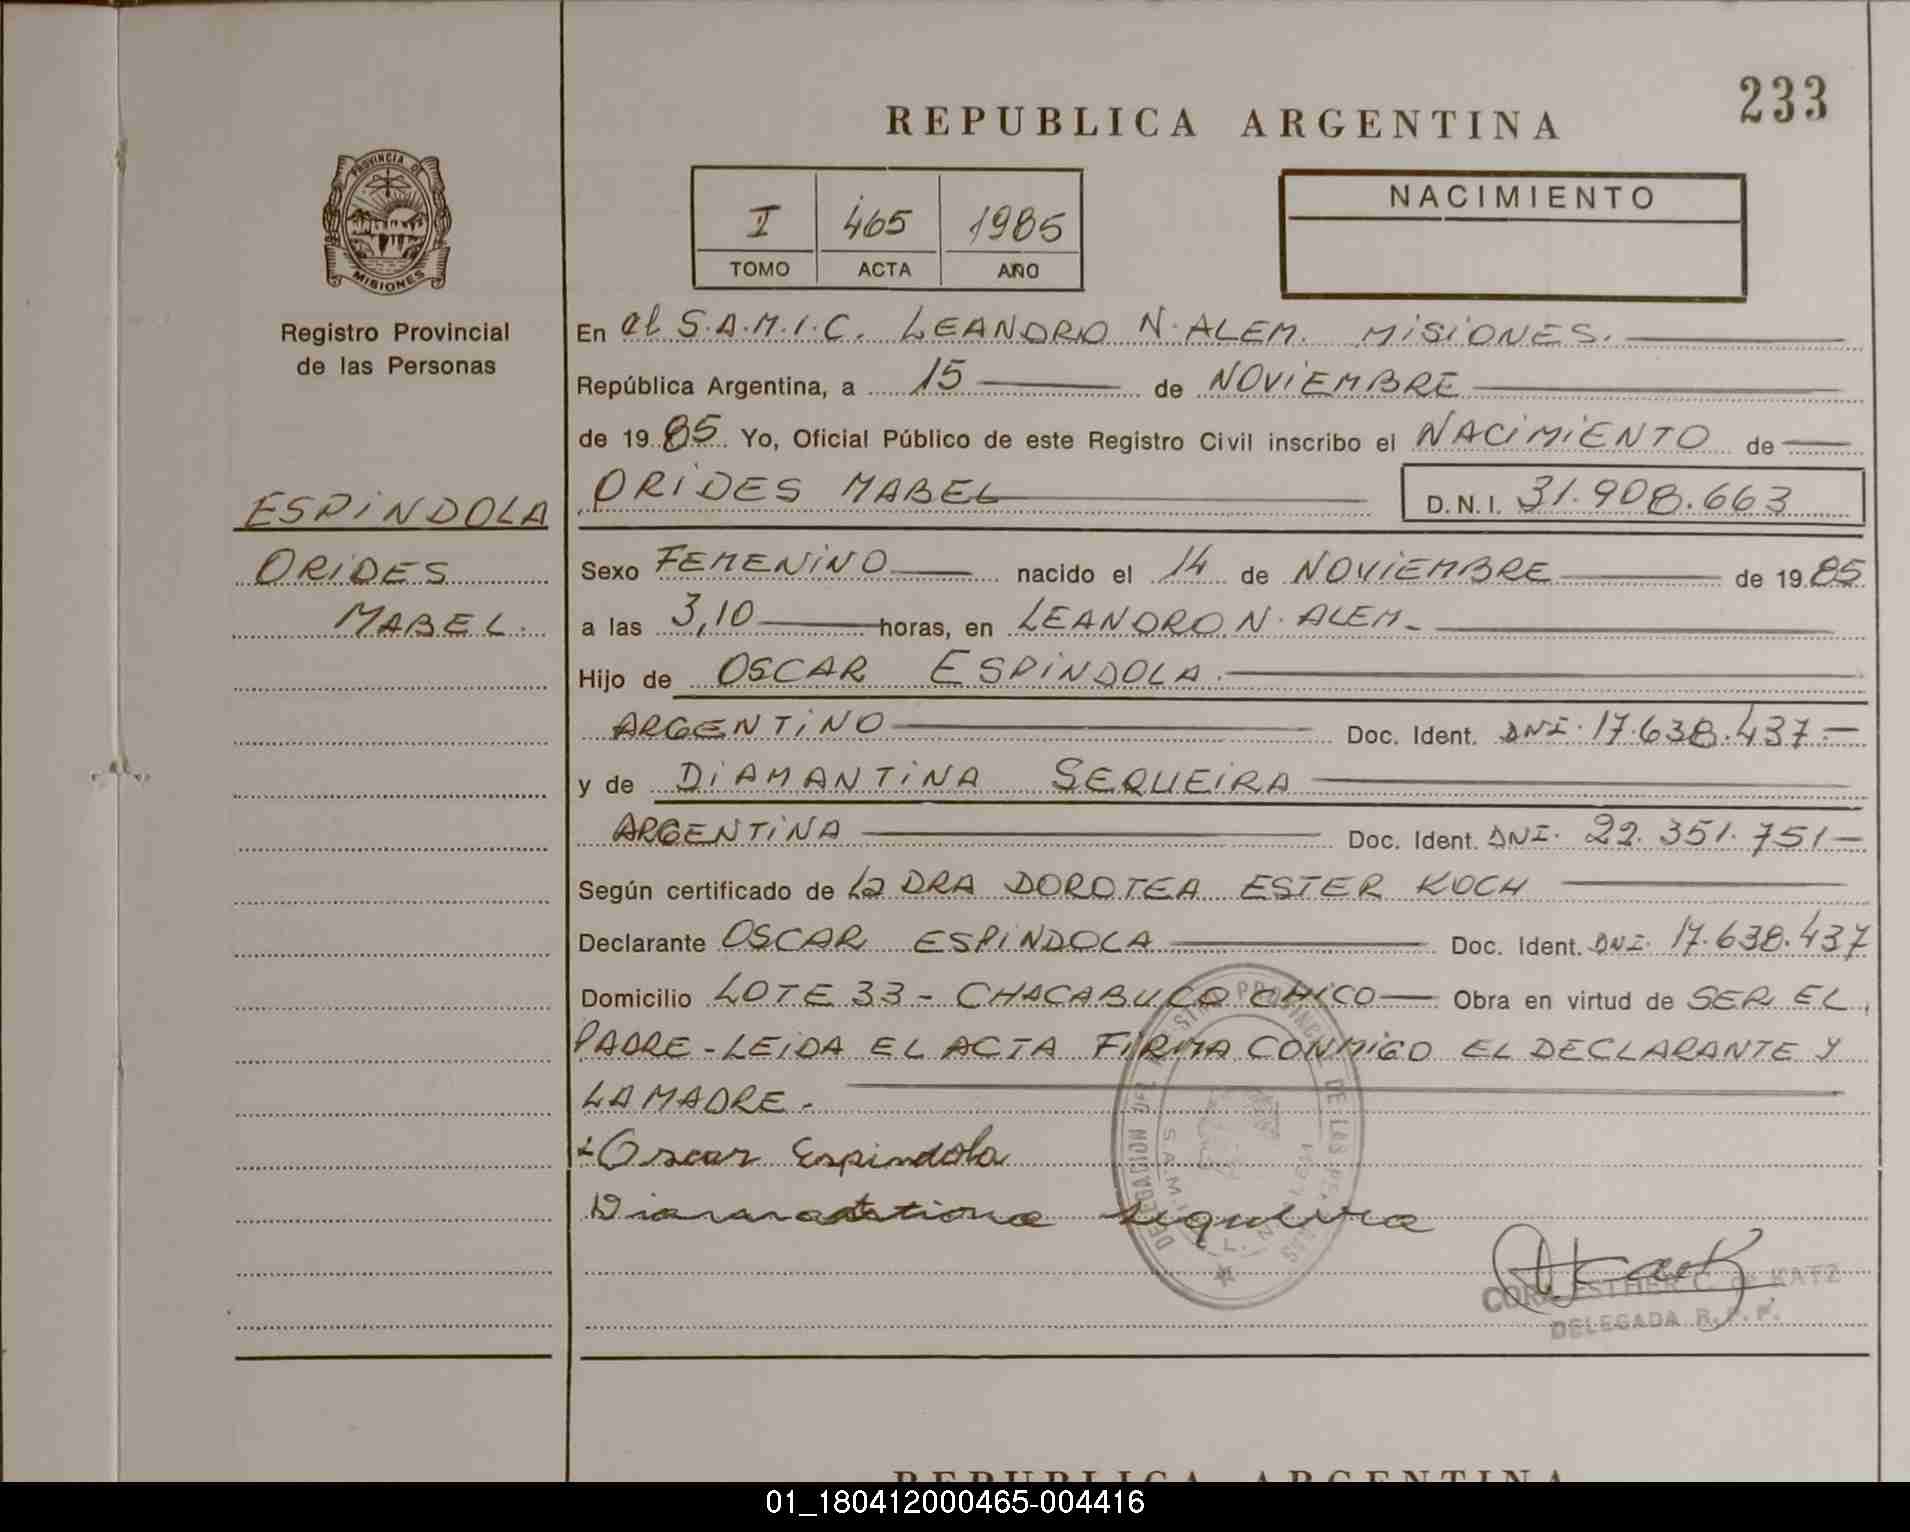 233
REPUBLICA ARGENTINA
PROVINCIA DE
MISIONES
Registro Provincial
de las Personas
I 465 1985
TOMO ACTA AÑO
NACIMIENTO
En el S.A.M.I.C. LEANDRO N. ALEM. MISIONES.
República Argentina, a 15 de NOVIEMBRE
de 1985 Yo, Oficial Público de este Registro Civil inscribo el NACIMIENTO de
ESPINDOLA
ORIDES
MABEL.
ORIDES MABEL D.N.I. 31.908.663
Sexo FEMENINO nacido el 14 de NOVIEMBRE de 1985
a las 3,10 horas, en LEANDRO N. ALEM.
Hijo de OSCAR ESPINDOLA.
ARGENTINO Doc. Ident. DNI. 17.638.437.-
y de DIAMANTINA SEQUEIRA
ARGENTINA Doc. Ident. DNI. 22.351.751-
Según certificado de La DRA DOROTEA ESTER KOCH
Declarante OSCAR ESPINDOLA Doc. Ident. DNI. 17.638.437
Domicilio LOTE 33 - CHACABUCO CHICO Obra en virtud de SER EL
PADRE - LEIDA EL ACTA FIRMA CONMIGO EL DECLARANTE Y
LA MADRE.-
Oscar Espindola
sequeira
DELEGACION DEL REGISTRO PROVINCIAL DE LAS PERSONAS
S.A.M.I.C. L. N. ALEM
ESTHER C. de KATZ
DELEGADA R.P.P.
REPUBLICA ARGENTINA
01_180412000465-004416